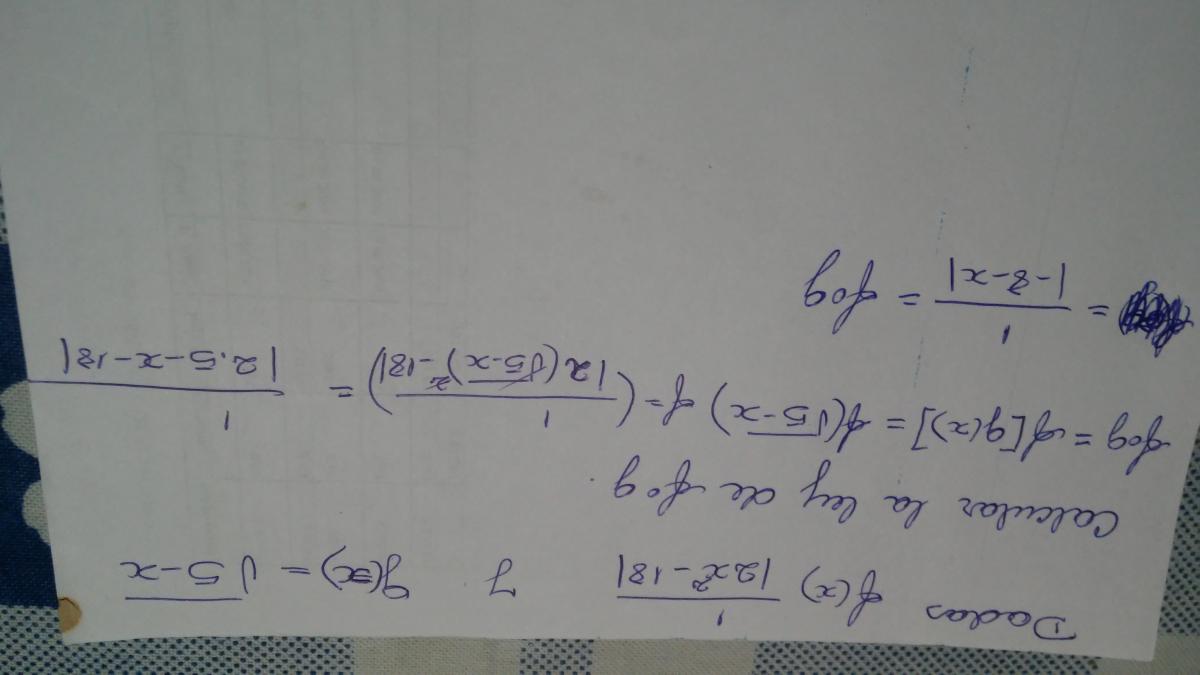 Dadas f(x) 1/|2x²-18| y g(x) = √5-x
Calcular la ley de fog
fog = f[g(x)] = f(√5-x) f = (1/|2(√5-x)²-18|) = 1/|2.5-x-18|
= 1/|-8-x| = fog